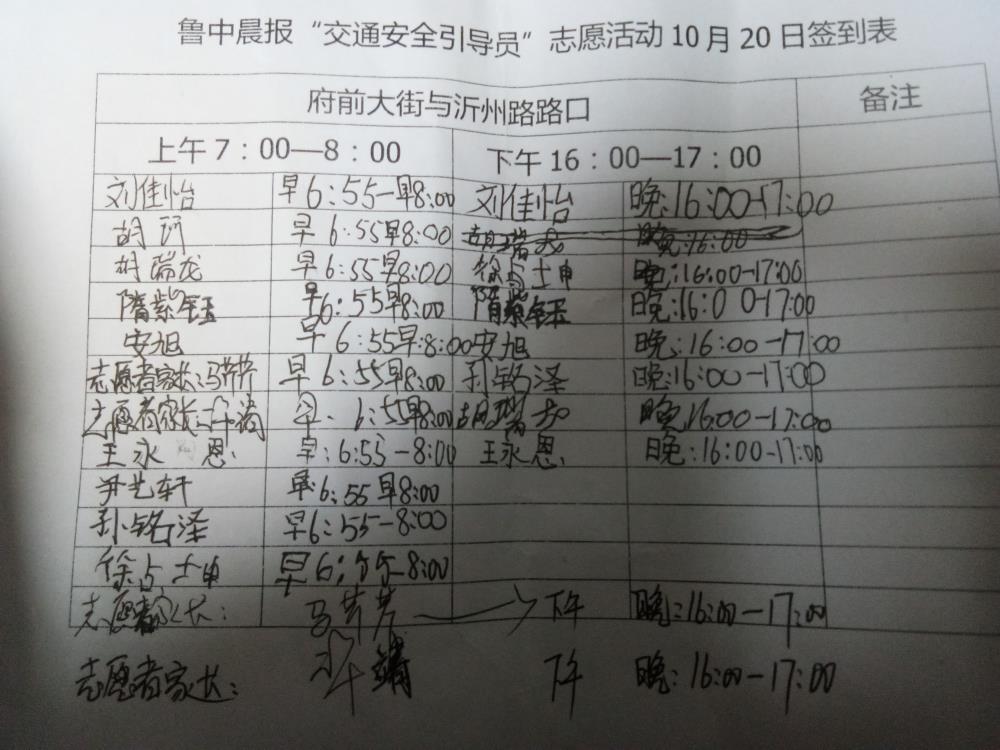 鲁中晨报“交通安全引导员”志愿活动10月20日签到表
府前大街与沂州路路口 备注
上午7：00—8：00 下午16：00—17：00
刘佳怡 早6:55-早8:00 刘佳怡 晚:16:00-17:00
胡珂 早6:55早8:00 胡瑞龙 晚:16:00
胡瑞龙 早6:55早8:00 徐占士申 晚:16:00-17:00
隋紫钰 早6:55早8:00 隋紫钰 晚:16:00-17:00
安旭 早6:55早:8:00 安旭 晚:16:00-17:00
志愿者家长:马芹芹 早6:55早8:00 孙铭泽 晚:16:00-17:00
志愿者家长: 早.6:55早8:00 胡瑞龙 晚16:00-17:00
王永恩 早:6:55-8:00 王永恩 晚:16:00-17:00
尹艺轩 早6:55早8:00
孙铭泽 早6:55-8:00
徐占士申 早6:55-8:00
志愿者家长: 马芹芹 下午 晚:16:00-17:00
志愿者家长: 下午 晚:16:00-17:00